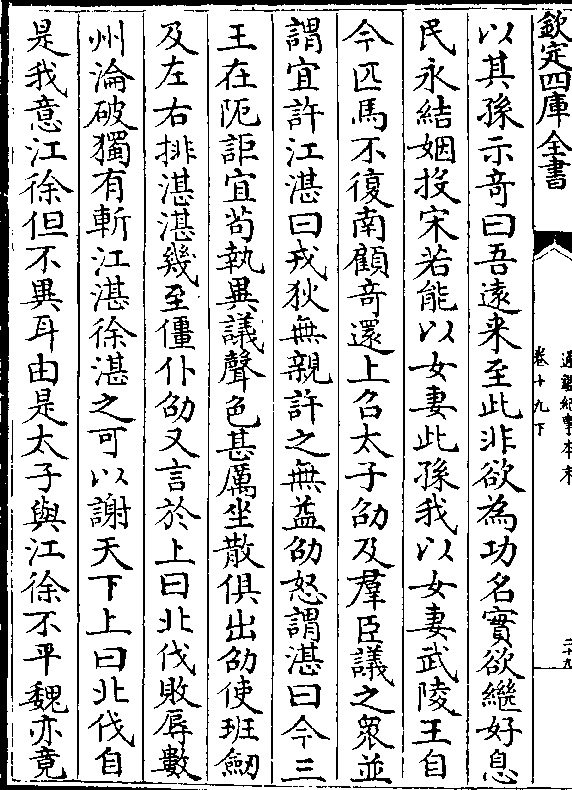 欽定四庫全書
通鑑紀事本末
卷十九下
二十九
以其孫示奇曰吾遠来至此非欲為功名實欲繼好息
民永結姻投宋若能以女妻此孫我以女妻武陵王自
今匹馬不復南顧奇還上召太子劭及羣臣議之衆並
謂宜許江湛曰戎狄無親許之無益劭怒謂湛曰今三
王在阨詎宜苟執異議聲色甚厲坐散俱出劭使班劒
及左右排湛湛幾至僵仆劭又言於上曰北伐敗辱數
州淪破獨有斬江湛徐湛之可以謝天下上曰北伐自
是我意江徐但不異耳由是太子與江徐不平魏亦竟